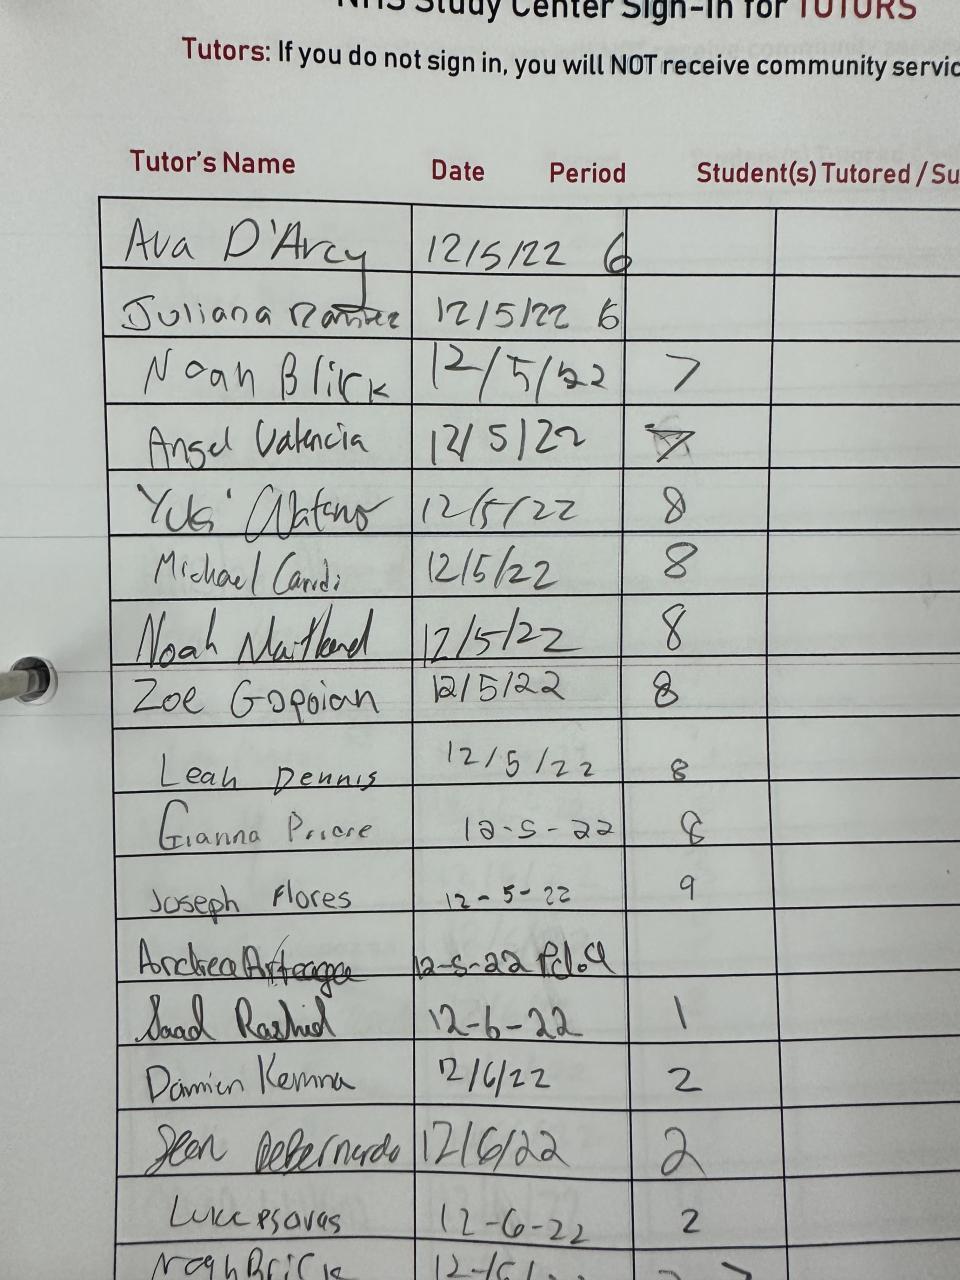 NHS Study Center Sign-In for TUTORS
Tutors: If you do not sign in, you will NOT receive community servic
Tutor's Name Date Period Student(s) Tutored / Su
Ava D'Arcy 12/5/22 6
Juliana 12/5/22 6
Noah Blick 12/5/22 7
Angel Valencia 12/5/22 7
Yuki Watano 12/5/22 8
Michael Cardi 12/5/22 8
Noah Maitland 12/5/22 8
Zoe Gopoian 12/5/22 8
Leah Dennis 12/5/22 8
Gianna Priore 12-5-22 8
Joseph Flores 12-5-22 9
Andrea Arteaga 12-5-22 Pd.9
Saad Rashid 12-6-22 1
Damien Kemna 12/6/22 2
Sean DeBernardo 12/6/22 2
Luke Psovas 12-6-22 2
Noah Brick